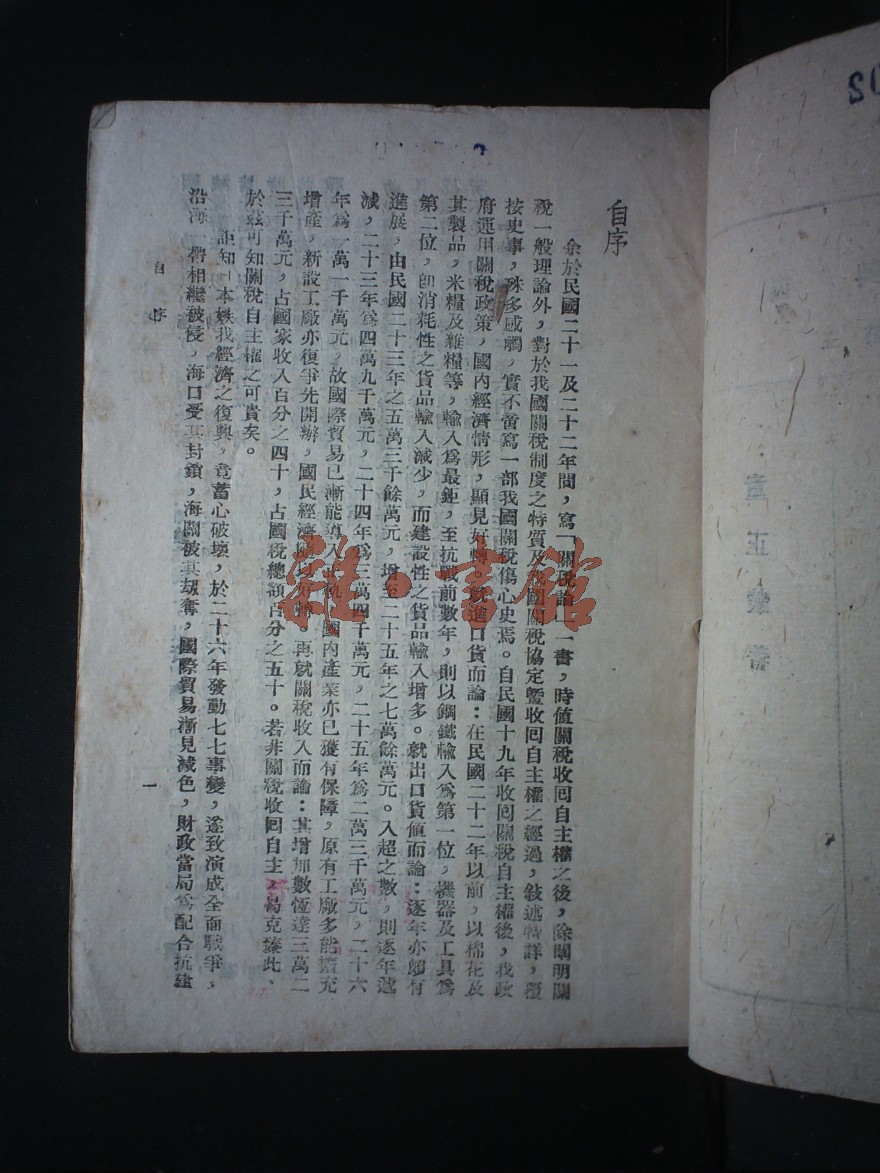 自序
余於民國二十一及二十二年間，寫「關稅論」一書，時值關稅收回自主權之後，除闡明關
稅一般理論外，對於我國關稅制度之特質及我國關稅協定暨收回自主權之經過，敍述特詳，覆
按史事，殊多感觸，實不啻寫一部我國關稅傷心史焉。自民國十九年收回關稅自主權後，我政
府運用關稅政策，國內經濟情形，顯見好轉。就進口貨而論：在民國二十二年以前，以棉花及
其製品，米糧及雜糧等，輸入爲最鉅，至抗戰前數年，則以鋼鐵輸入爲第一位，機器及工具爲
第二位，卽消耗性之貨品輸入減少，而建設性之貨品輸入增多。就出口貨値而論：逐年亦頗有
進展，由民國二十三年之五萬三千餘萬元，增至二十五年之七萬餘萬元。入超之數，則逐年遞
減，二十三年爲四萬九千萬元，二十四年爲三萬四千萬元，二十五年爲二萬三千萬元，二十六
年爲一萬一千萬元，故國際貿易已漸能導入正軌，國內產業亦已獲有保障，原有工廠多能擴充
增產，新設工廠亦復爭先開辦，國民經濟隨以好轉。再就關稅收入而論：其增加數恆達三萬二
三千萬元，占國家收入百分之四十，占國稅總額百分之五十。若非關稅收回自主，曷克臻此、
於茲可知關稅自主權之可貴矣。
詎知日本嫉我經濟之復興，竟蓄心破壞，於二十六年發動七七事變，遂致演成全面戰爭，
沿海一帶相繼被侵，海口受其封鎖，海關被其刧奪，國際貿易漸見減色，財政當局爲配合抗建
自序
一
雜·書館
章正